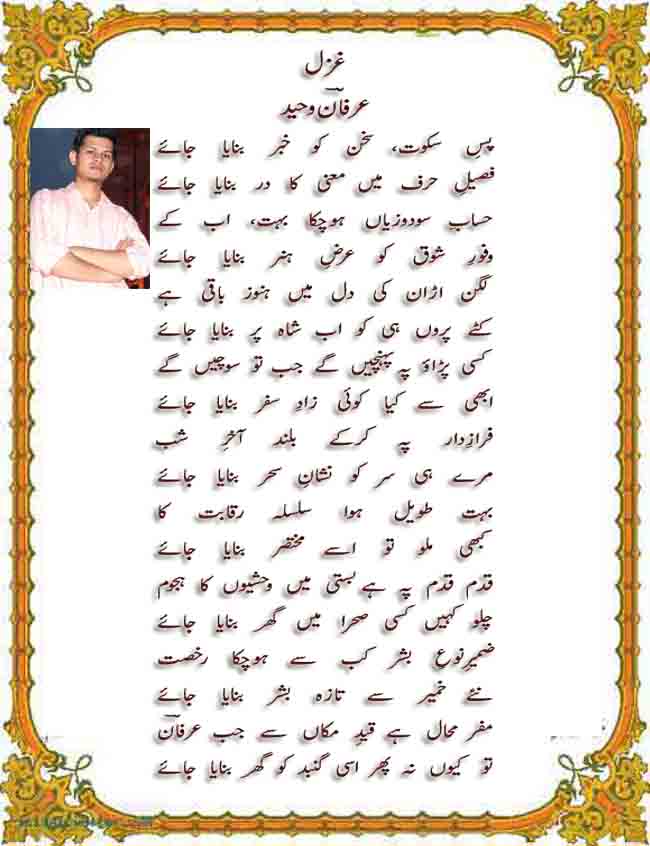 غزل
عرفانؔ وحید
پسِ سکوت، سخن کو خبر بنایا جائے
فصیلِ حرف میں معنی کا در بنایا جائے
حساب سودوزیاں ہوچکا بہت، اب کے
وفورِ شوق کو عرضِ ہنر بنایا جائے
لگن اڑان کی دل میں ہنوز باقی ہے
کٹے پروں ہی کو اب شاہ پر بنایا جائے
کسی پڑاؤ پہ پہنچیں گے جب تو سوچیں گے
ابھی سے کیا کوئی زادِ سفر بنایا جائے
فرازِدار پہ کرکے بلند آخرِ شب
مرے ہی سر کو نشانِ سحر بنایا جائے
بہت طویل ہوا سلسلہ رقابت کا
کبھی ملو تو اسے مختصر بنایا جائے
قدم قدم پہ ہے بستی میں وحشیوں کا ہجوم
چلو کہیں کسی صحرا میں گھر بنایا جائے
ضمیرِنوعِ بشر کب سے ہوچکا رخصت
نئے خمیر سے تازہ بشر بنایا جائے
مفر محال ہے قیدِ مکاں سے جب عرفانؔ
تو کیوں نہ پھر اسی گنبد کو گھر بنایا جائے